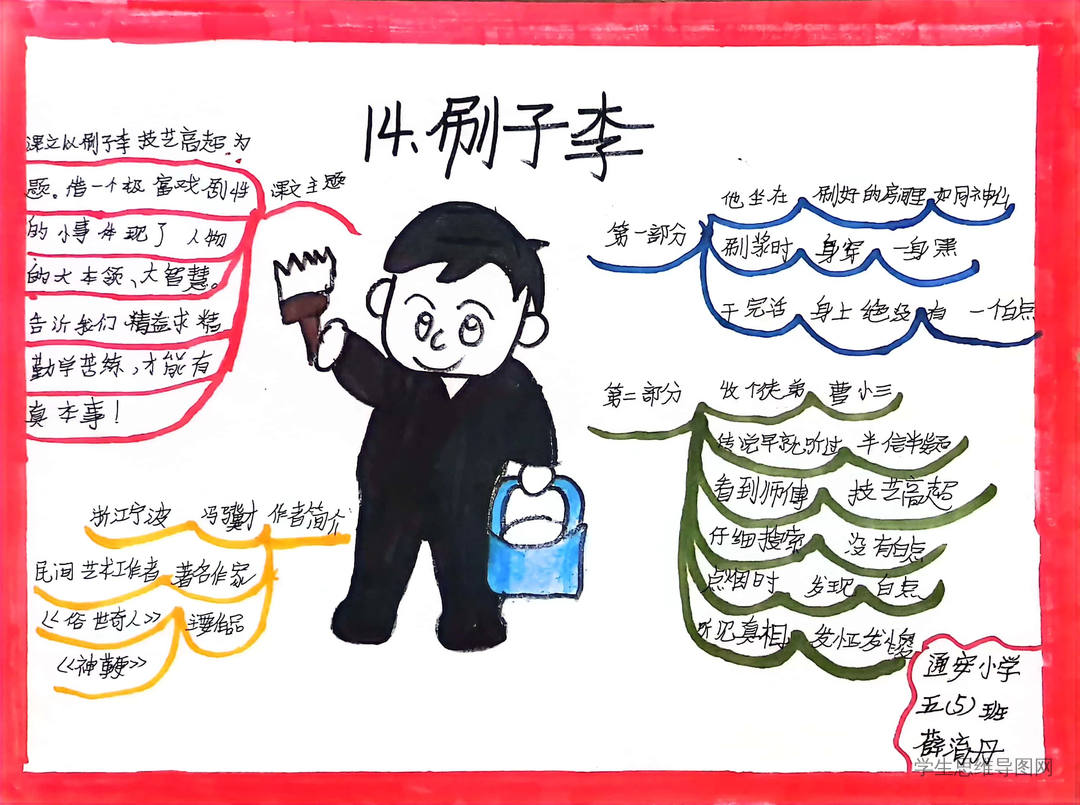 14.刷子李
课文以刷子李技艺高超为
题。借一个极富戏剧性
的小事体现了人物
的大本领、大智慧。
告诉我们精益求精
勤学苦练,才能有
真本事!
课文主题
浙江宁波 冯骥才 作者简介
民间艺术工作者 著名作家
《俗世奇人》 主要作品
《神鞭》
第一部分
他坐在 刷好的房屋里 如同神仙
刷浆时 身穿 一身黑
干完活 身上绝没有 一个白点
第二部分
收个徒弟 曹小三
传说早就听过 半信半疑
看到师傅 技艺高超
仔细搜索 没有白点
点烟时 发现 白点
听见真相 发怔发傻
通安小学
五(5)班
薛 丹
学生思维导图网